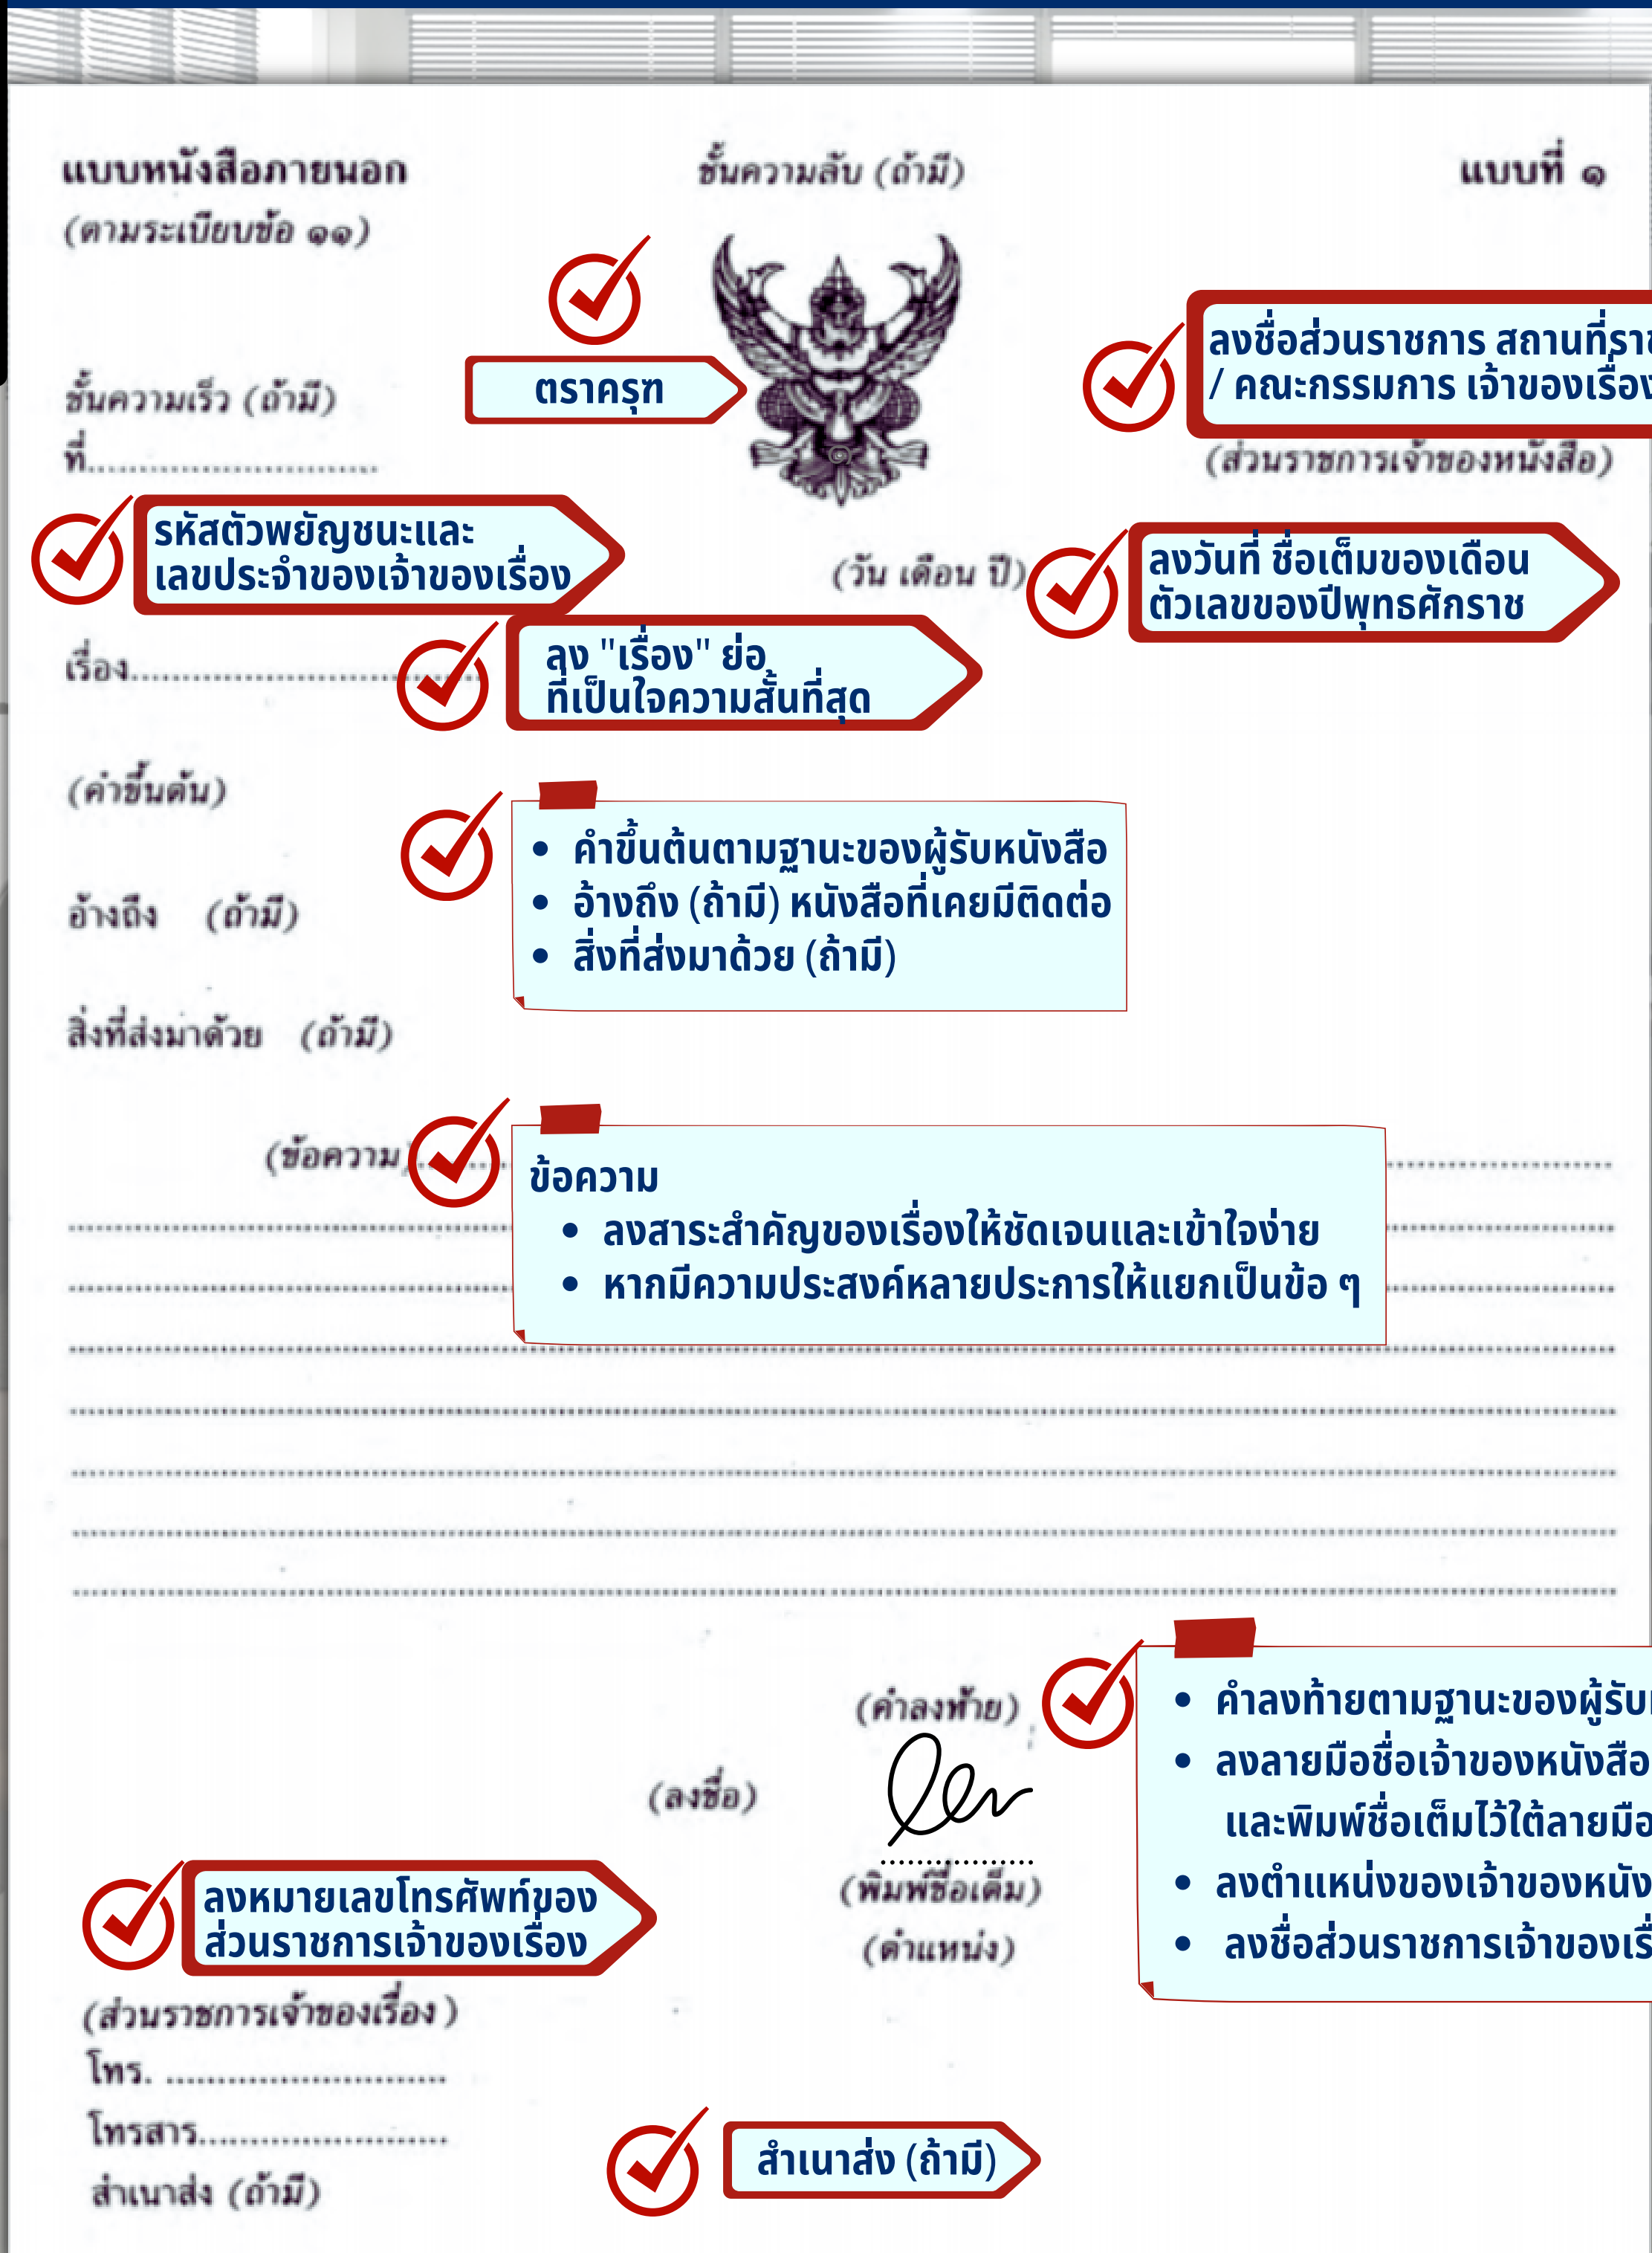 แบบหนังสือภายนอก
ชั้นความลับ (ถ้ามี)
แบบที่ ๑
(ตามระเบียบข้อ ๑๑)
ตราครุฑ
ลงชื่อส่วนราชการ สถานที่ราช
/ คณะกรรมการ เจ้าของเรื่อง
ชั้นความเร็ว (ถ้ามี)
ที่............................
(ส่วนราชการเจ้าของหนังสือ)
รหัสตัวพยัญชนะและ
เลขประจำของเจ้าของเรื่อง
(วัน เดือน ปี)
ลงวันที่ ชื่อเต็มของเดือน
ตัวเลขของปีพุทธศักราช
เรื่อง..................................
ลง "เรื่อง" ย่อ
ที่เป็นใจความสั้นที่สุด
(คำขึ้นต้น)
• คำขึ้นต้นตามฐานะของผู้รับหนังสือ
• อ้างถึง (ถ้ามี) หนังสือที่เคยมีติดต่อ
• สิ่งที่ส่งมาด้วย (ถ้ามี)
อ้างถึง (ถ้ามี)
สิ่งที่ส่งมาด้วย (ถ้ามี)
(ข้อความ)
ข้อความ
• ลงสาระสำคัญของเรื่องให้ชัดเจนและเข้าใจง่าย
• หากมีความประสงค์หลายประการให้แยกเป็นข้อ ๆ
(คำลงท้าย)
• คำลงท้ายตามฐานะของผู้รับ
• ลงลายมือชื่อเจ้าของหนังสือ
และพิมพ์ชื่อเต็มไว้ใต้ลายมือ
• ลงตำแหน่งของเจ้าของหนัง
• ลงชื่อส่วนราชการเจ้าของเรื่
(ลงชื่อ)
(พิมพ์ชื่อเต็ม)
(ตำแหน่ง)
ลงหมายเลขโทรศัพท์ของ
ส่วนราชการเจ้าของเรื่อง
(ส่วนราชการเจ้าของเรื่อง)
โทร. ...........................
โทรสาร........................
สำเนาส่ง (ถ้ามี)
สำเนาส่ง (ถ้ามี)